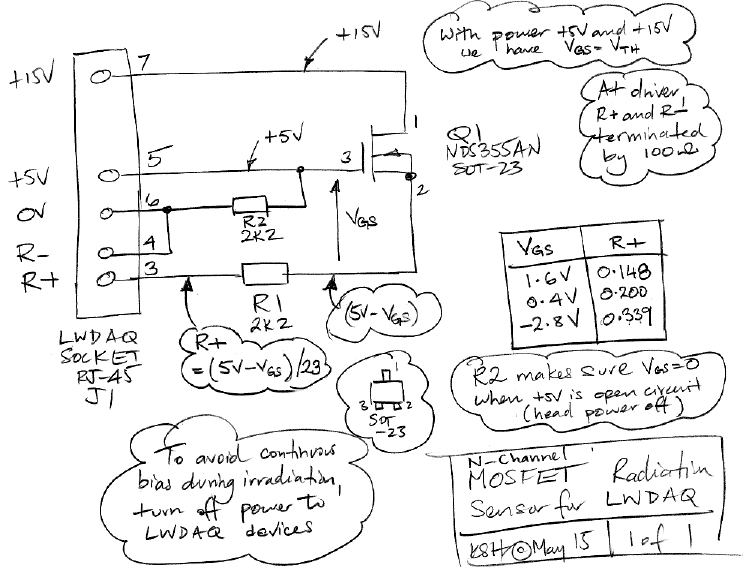 +15V
With power +5V and +15V
we have VGS = VTH
7
+15V
At driver
R+ and R-
terminated
by 100Ω
1
Q1
NDS355AN
SOT-23
+5V
3
5
+5V
2
6
0V
R2
2K2
VGS
4
R-
3
R+
VGS R+
1.6V 0.148
0.4V 0.200
-2.8V 0.339
R1
2K2
(5V-VGS)
LWDAQ
SOCKET
RJ-45
J1
R+
=(5V-VGS)/23
1
3 2
SOT
-23
R2 makes sure VGS=0
when +5V is open circuit
(head power off)
To avoid continuous
bias during irradiation,
turn off power to
LWDAQ devices
N-Channel
MOSFET Radiation
Sensor for LWDAQ
KSH @ May 15 1 of 1